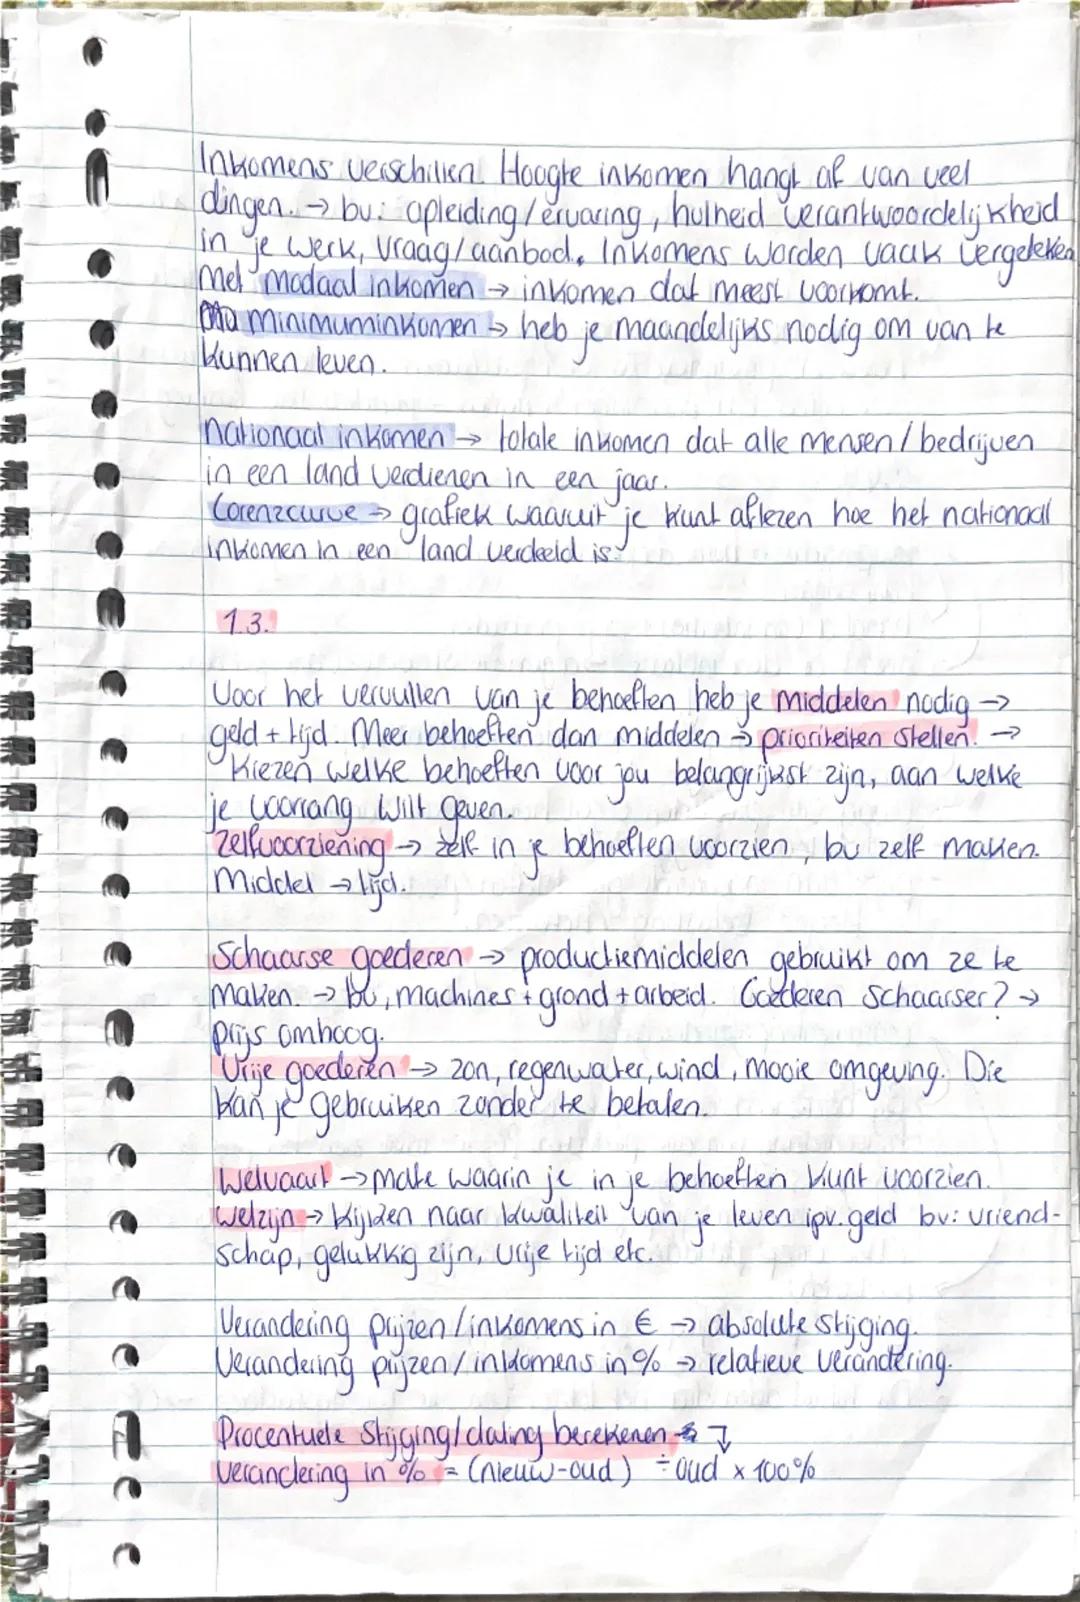 Inkomens verschillen. Hoogte inkomen hangt af van veel
dingen. → bv: opleiding/ervaring, hulheid verantwoordelijkheid
in je werk, vraag/aanbod. Inkomens worden vaak vergeleken
met modaal inkomen → inkomen dat meest voorkomt.
minimuminkomen → heb je maandelijks nodig om van te
kunnen leven.
nationaal inkomen → totale inkomen dat alle mensen/bedrijven
in een land verdienen in een jaar.
Lorenzcurve → grafiek waaruit je kunt aflezen hoe het nationaal
inkomen in een land verdeeld is.
1.3.
Voor het vervullen van je behoeften heb je middelen nodig →
geld + tijd. Meer behoeften dan middelen → prioriteiten stellen. →
Kiezen welke behoeften voor jou belangrijkst zijn, aan welke
je voorrang wilt geven.
Zelfvoorziening → zelf in je behoeften voorzien, bv zelf maken.
Middel → tijd.
Schaarse goederen → productiemiddelen gebruikt om ze te
maken. → bv, machines + grond + arbeid. Goederen schaarser? →
prijs omhoog.
Vrije goederen → zon, regenwater, wind, mooie omgeving. Die
kan je gebruiken zonder te betalen.
Welvaart → mate waarin je in je behoeften kunt voorzien.
Welzijn → kijken naar kwaliteit van je leven ipv. geld bv: vriend-
schap, gelukkig zijn, vrije tijd etc.
Verandering prijzen/inkomens in € → absolute stijging.
Verandering prijzen/inkomens in % → relatieve verandering.
Procentuele Stijging/daling berekenen ↴
Verandering in % = (nieuw-oud) ÷ oud x 100%